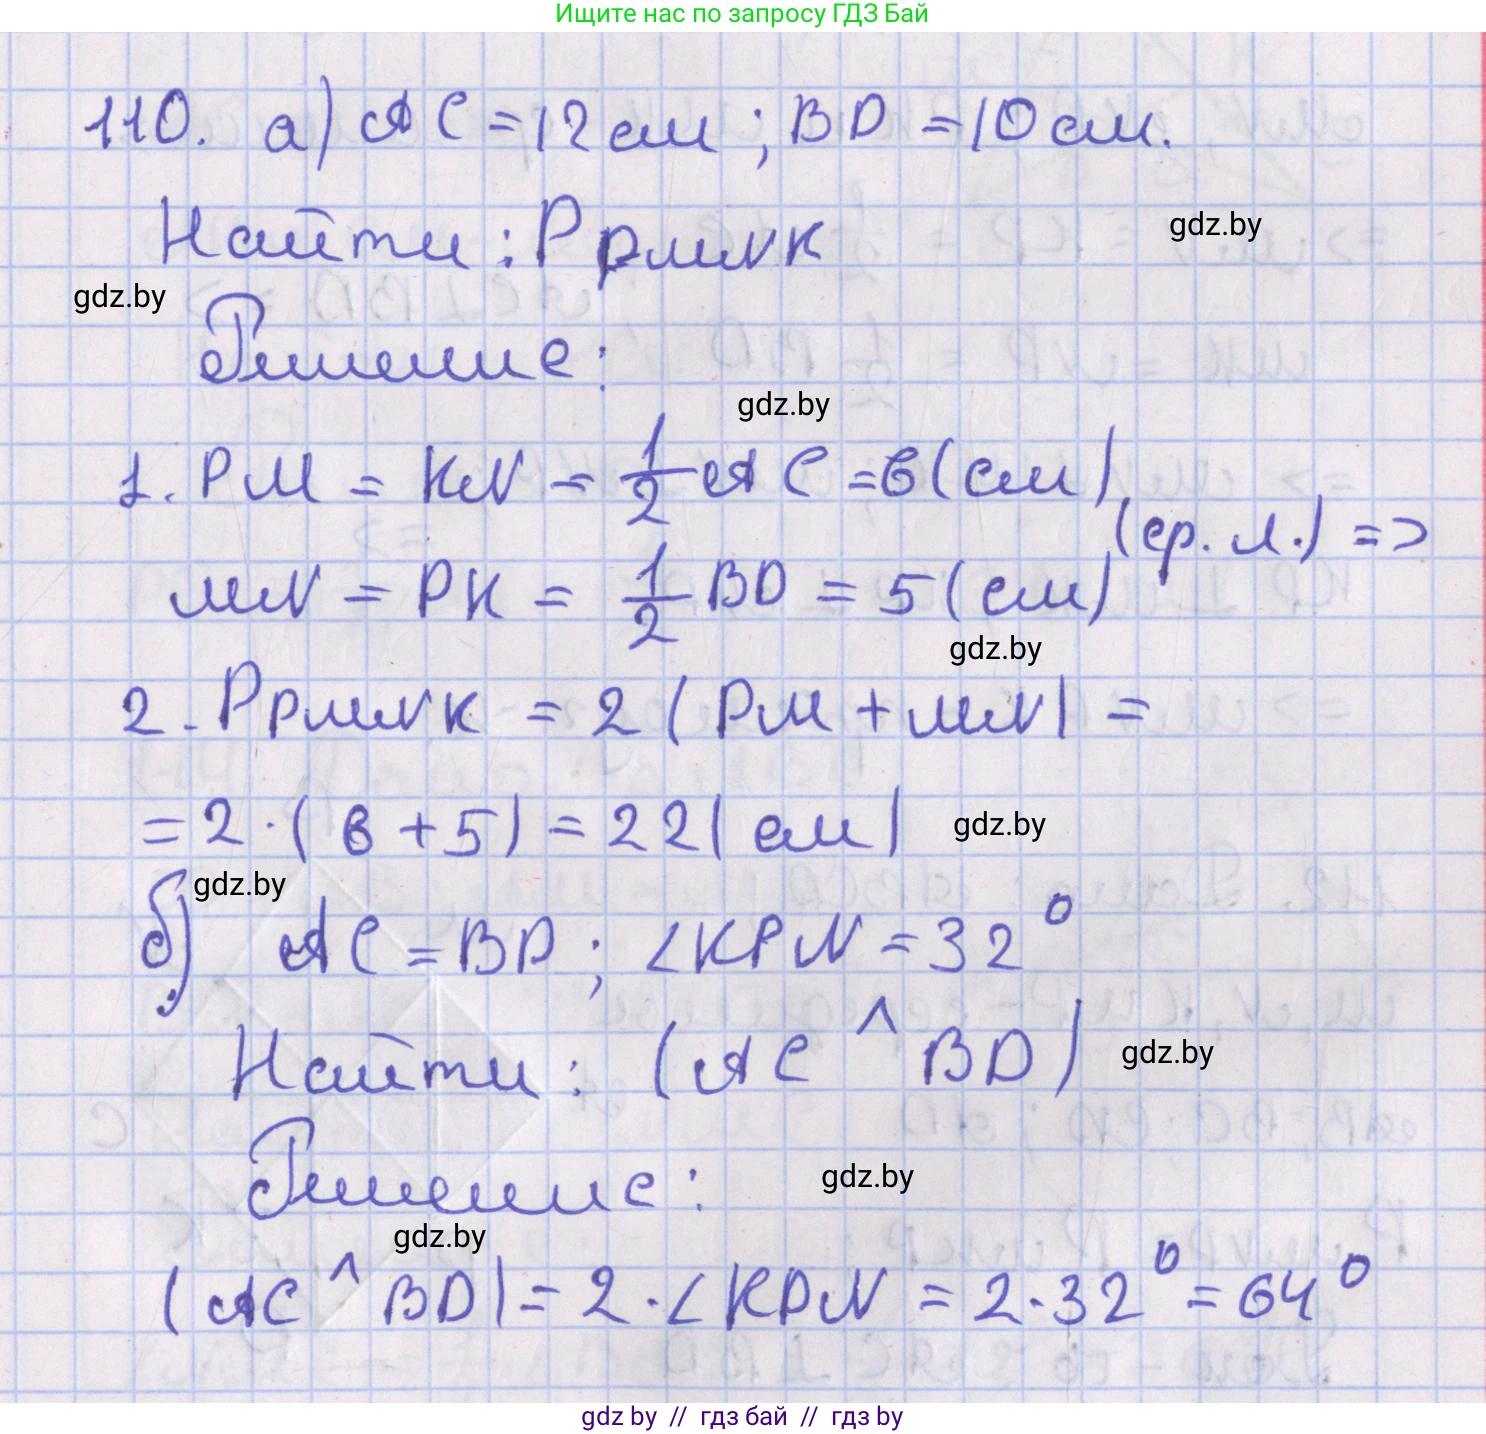 Ищите нас по запросу ГДЗ Бай
110. а) AC = 12 см ; BD = 10 см.
Найти : P PMNK
gdz.by
gdz.by
Решение :
gdz.by
1. PM = KN = 1/2 AC = 6 (см)
(ср. л.) =>
MN = PK = 1/2 BD = 5 (см)
gdz.by
2. P PMNK = 2 (PM + MN) =
= 2 · (6 + 5) = 22 (см)
gdz.by
gdz.by
б) AC = BD ; ∠KPN = 32°
Найти : (AC ^ BD)
gdz.by
Решение :
gdz.by
gdz.by
(AC ^ BD) = 2 · ∠KPN = 2 · 32° = 64°
gdz by // гдз бай // гдз by